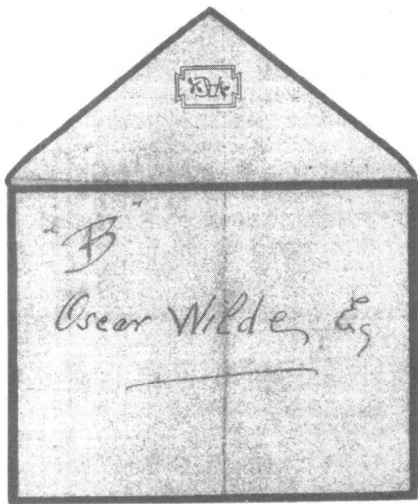 "B"
Oscar Wilde, Esq